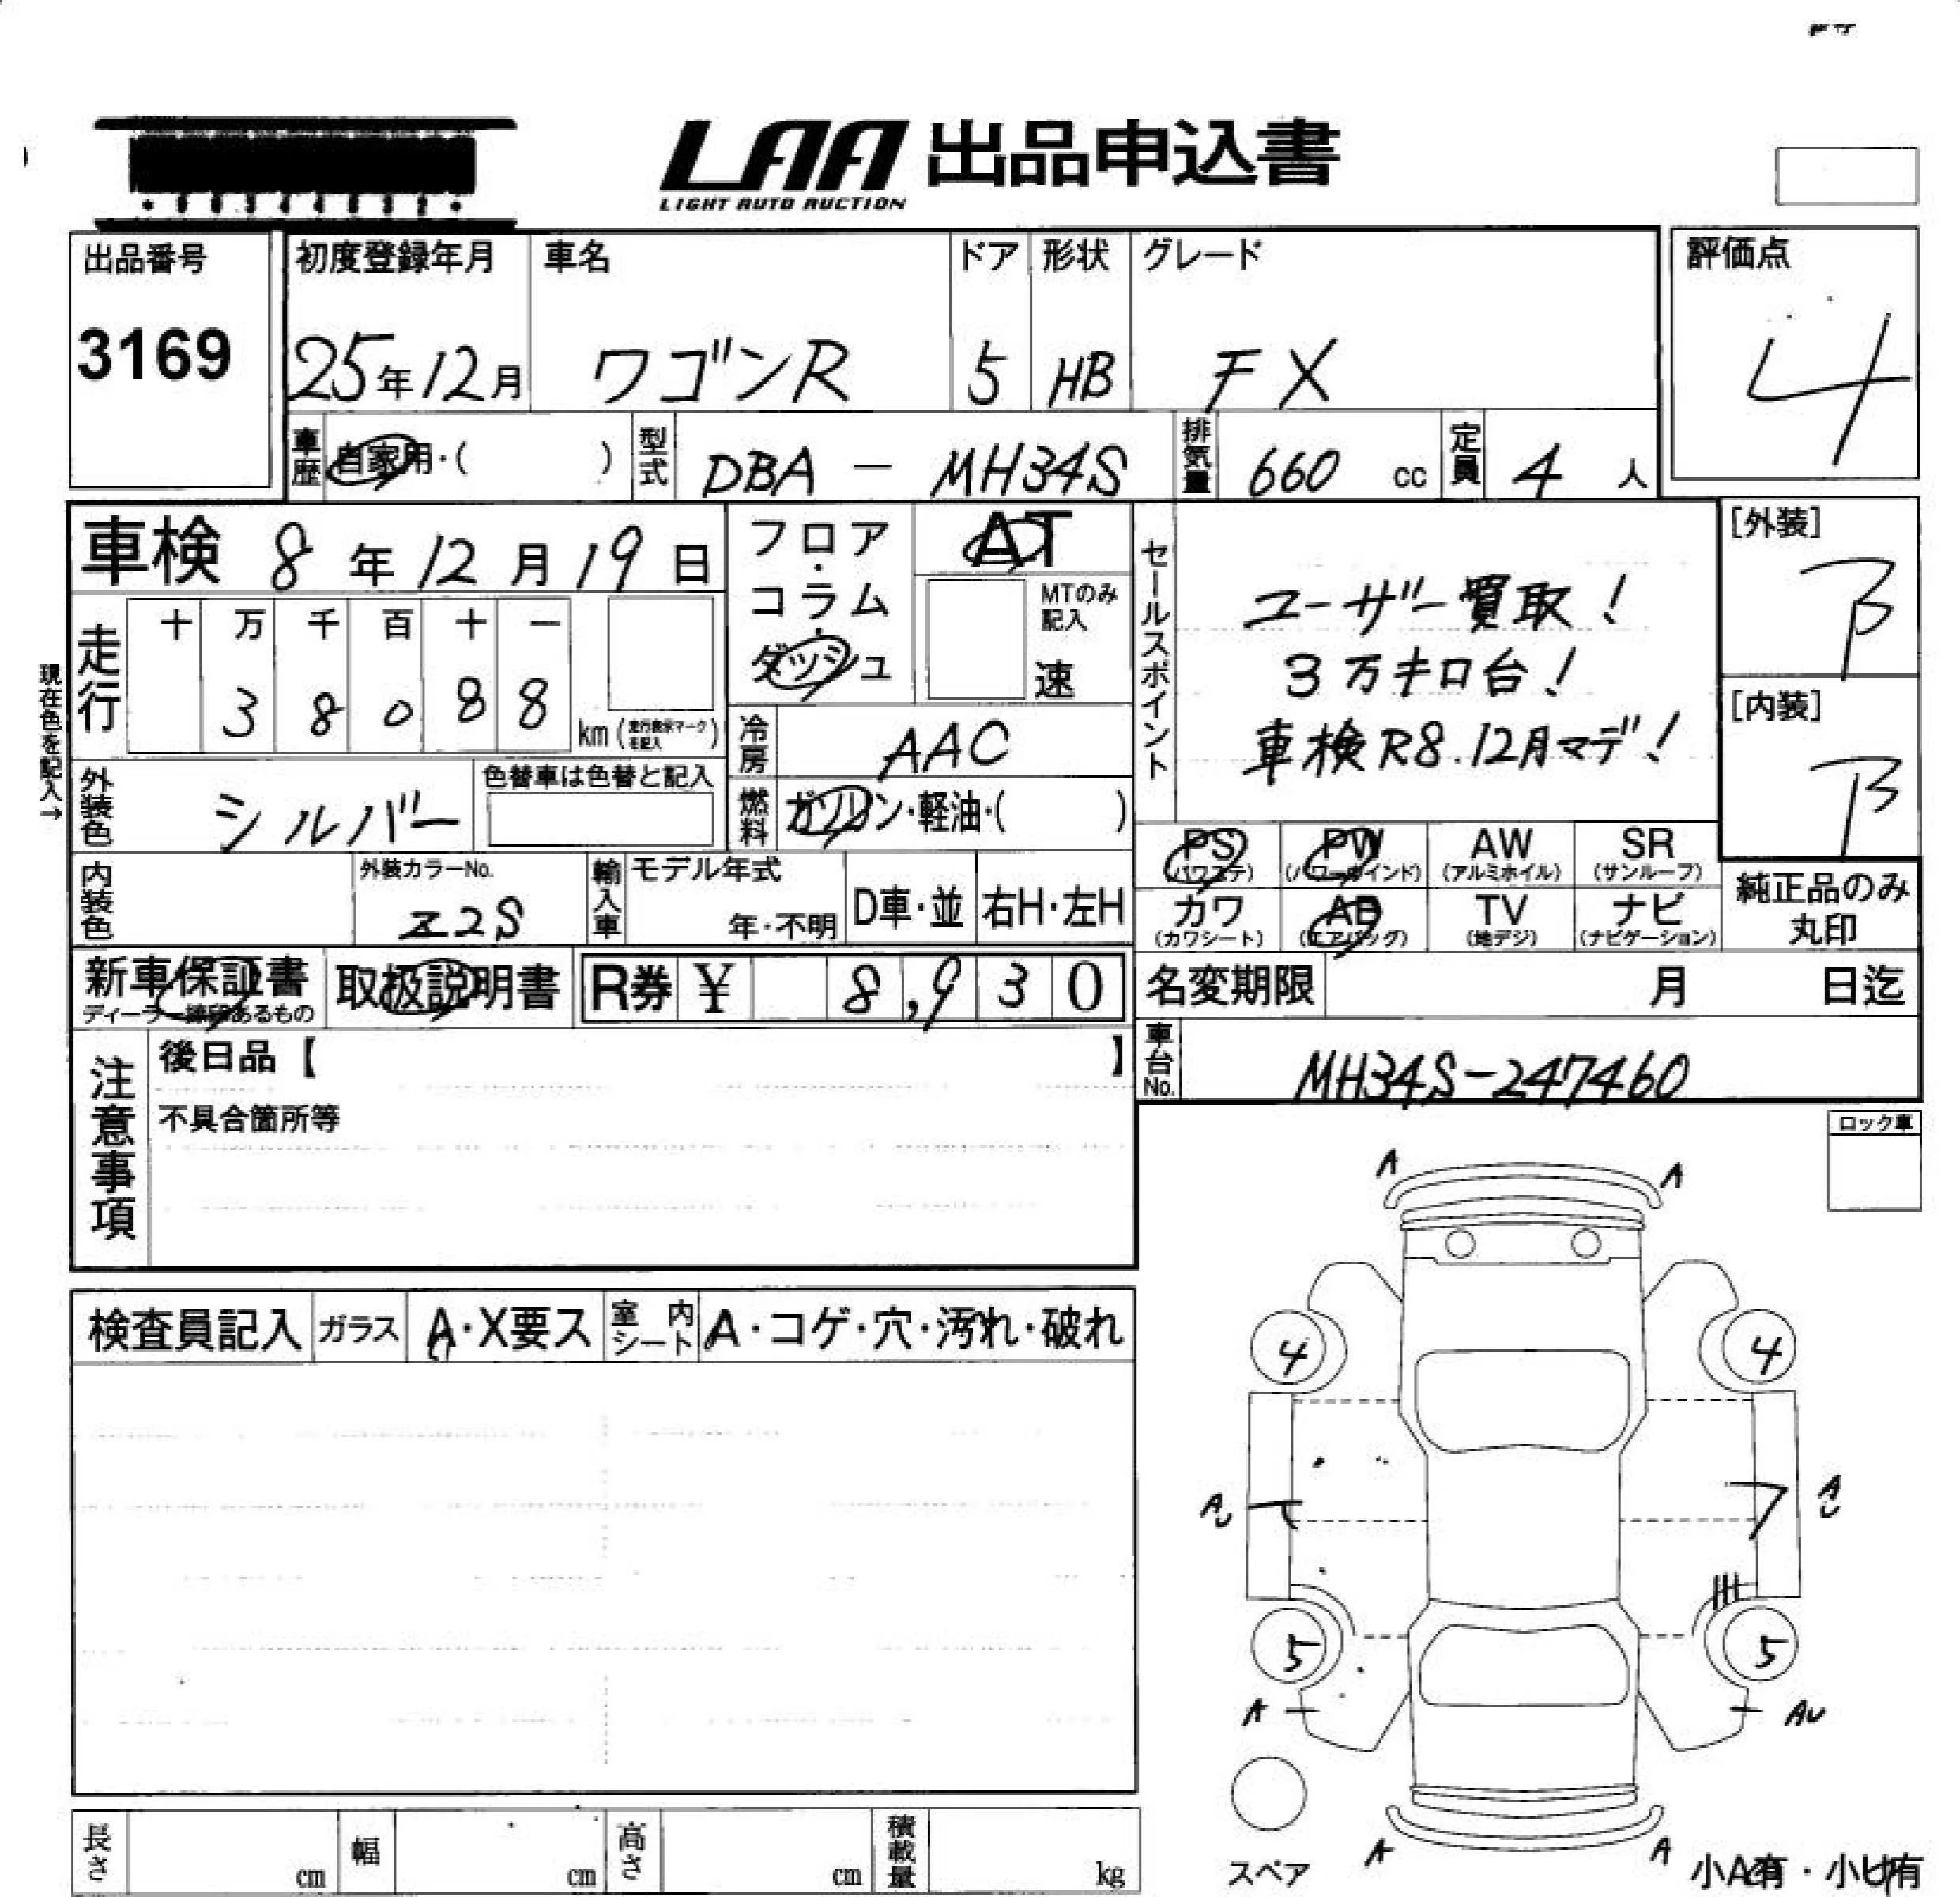 LAA 出品申込書
LIGHT AUTO AUCTION
出品番号
3169
初度登録年月 車名 ドア 形状 グレード
25年12月 ワゴンR 5 HB FX
評価点
4
車歴 自家用・( ) 型式 DBA - MH34S 排気量 660 cc 定員 4 人
車検 8年12月19日
フロア・コラム・ダッシュ
AT
MTのみ記入
速
走行 十 万 千 百 十 一
3 8 0 8 8 km (走行表示マークを記入)
現在色を記入→
冷房 AAC
外装色 シルバー
色替車は色替と記入
燃料 ガソリン・軽油・( )
内装色
外装カラーNo.
Z2S
輸入車 モデル年式
年・不明
D車・並 右H・左H
セールスポイント
ユーザー買取!
3万キロ台!
車検R8.12月マデ!
[外装]
B
[内装]
B
PS (パワステ) PW (パワーウインド) AW (アルミホイル) SR (サンルーフ)
カワ (カワシート) AB (エアバッグ) TV (地デジ) ナビ (ナビゲーション)
純正品のみ
丸印
新車保証書 取扱説明書 R券 ¥ 8,930
ディーラー捺印あるもの
名変期限 月 日迄
車台No. MH34S-247460
注意事項
後日品【 】
不具合箇所等
ロック車
検査員記入 ガラス A・X要ス 室内シート A・コゲ・穴・汚れ・破れ
A A
4 4
AU AU
5 5
A AU
A A
スペア
小A有・小U有
長さ cm 幅 cm 高さ cm 積載量 kg